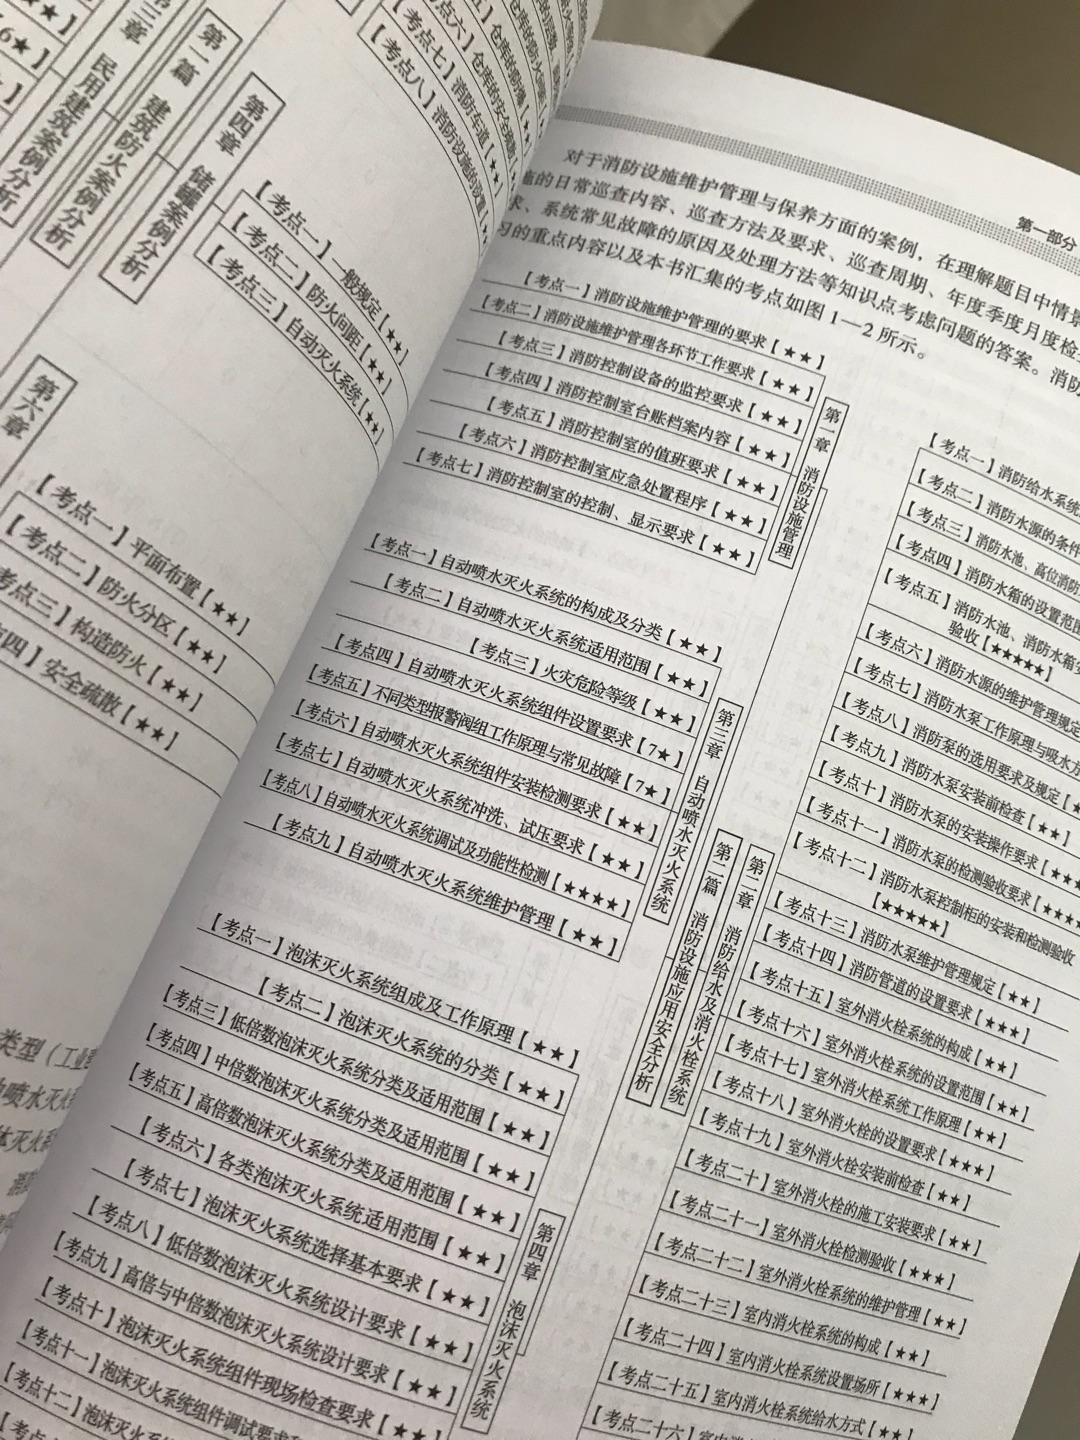 第三章
民用建筑案例分析
第一篇 建筑防火案例分析
第四章 储罐案例分析
【考点六】仓库的安全疏散
【考点七】消防车道【★★】
【考点八】消防设施的设置
【考点一】一般规定【★★】
【考点二】防火间距【★★】
【考点三】自动灭火系统【★★】
第六章
【考点一】平面布置【★★】
【考点二】防火分区【★★】
考点三】构造防火【★★】
点四】安全疏散【★★】
第一部分
对于消防设施维护管理与保养方面的案例，在理解题目中情景
施的日常巡查内容、巡查方法及要求、巡查周期、年度季度月度检
求、系统常见故障的原因及处理方法等知识点考虑问题的答案。消防
习的重点内容以及本书汇集的考点如图 1—2 所示。
【考点一】消防设施维护管理的要求【★★】
【考点二】消防设施维护管理各环节工作要求【★★】
【考点三】消防控制设备的监控要求【★★】
【考点四】消防控制室台账档案内容【★★】
【考点五】消防控制室的值班要求【★★】
【考点六】消防控制室应急处置程序【★★】
【考点七】消防控制室的控制、显示要求【★★】
第一章 消防设施管理
【考点一】自动喷水灭火系统的构成及分类【★★】
【考点二】自动喷水灭火系统适用范围【★★】
【考点三】火灾危险等级【★★】
【考点四】自动喷水灭火系统组件设置要求【7★】
【考点五】不同类型报警阀组工作原理与常见故障【7★】
【考点六】自动喷水灭火系统组件安装检测要求【★★】
【考点七】自动喷水灭火系统冲洗、试压要求【★★】
【考点八】自动喷水灭火系统调试及功能性检测【★★★★】
【考点九】自动喷水灭火系统维护管理【★★】
第三章 自动喷水灭火系统
第二篇 消防设施应用安全分析
【考点一】泡沫灭火系统组成及工作原理【★★】
【考点二】泡沫灭火系统的分类【★★】
【考点三】低倍数泡沫灭火系统分类及适用范围【★★】
【考点四】中倍数泡沫灭火系统分类及适用范围【★★】
【考点五】高倍数泡沫灭火系统分类及适用范围【★★】
【考点六】各类泡沫灭火系统适用范围【★★】
【考点七】泡沫灭火系统选择基本要求【★★】
【考点八】低倍数泡沫灭火系统设计要求【★★】
【考点九】高倍与中倍数泡沫灭火系统设计要求【★★】
【考点十】泡沫灭火系统组件现场检查要求【★★】
【考点十一】泡沫灭火系统组件调试要求
【考点十二】泡沫灭火系统
第四章 泡沫灭火系统
第二章 消防给水及消火栓系统
【考点一】消防给水系统
【考点二】消防水源的条件
【考点三】消防水池、高位消防
【考点四】消防水箱的设置范围
【考点五】消防水池、消防水箱
验收【★★★★★】
【考点六】消防水源的维护管理规定
【考点七】消防水泵工作原理与吸水方
【考点八】消防泵的选用要求及规定【★
【考点九】消防水泵安装前检查【★★】
【考点十】消防水泵的安装操作要求【★★★
【考点十一】消防水泵的检测验收要求【★★★★
【考点十二】消防水泵控制柜的安装和检测验收
【★★★★★】
【考点十三】消防水泵维护管理规定【★★】
【考点十四】消防管道的设置要求【★★★】
【考点十五】室外消火栓系统的构成【★★】
【考点十六】室外消火栓系统的设置范围【★★】
【考点十七】室外消火栓系统工作原理【★★】
【考点十八】室外消火栓的设置要求【★★★】
【考点十九】室外消火栓安装前检查【★★】
【考点二十】室外消火栓的施工安装要求【★★】
【考点二十一】室外消火栓检测验收【★★★】
【考点二十二】室外消火栓系统的维护管理【★★】
【考点二十三】室内消火栓系统的构成【★★】
【考点二十四】室内消火栓系统设置场所【★★★】
【考点二十五】室内消火栓系统给水方式【★★】
【考点二十六】室内消火栓
类型（工业
动喷水灭火
体灭火系